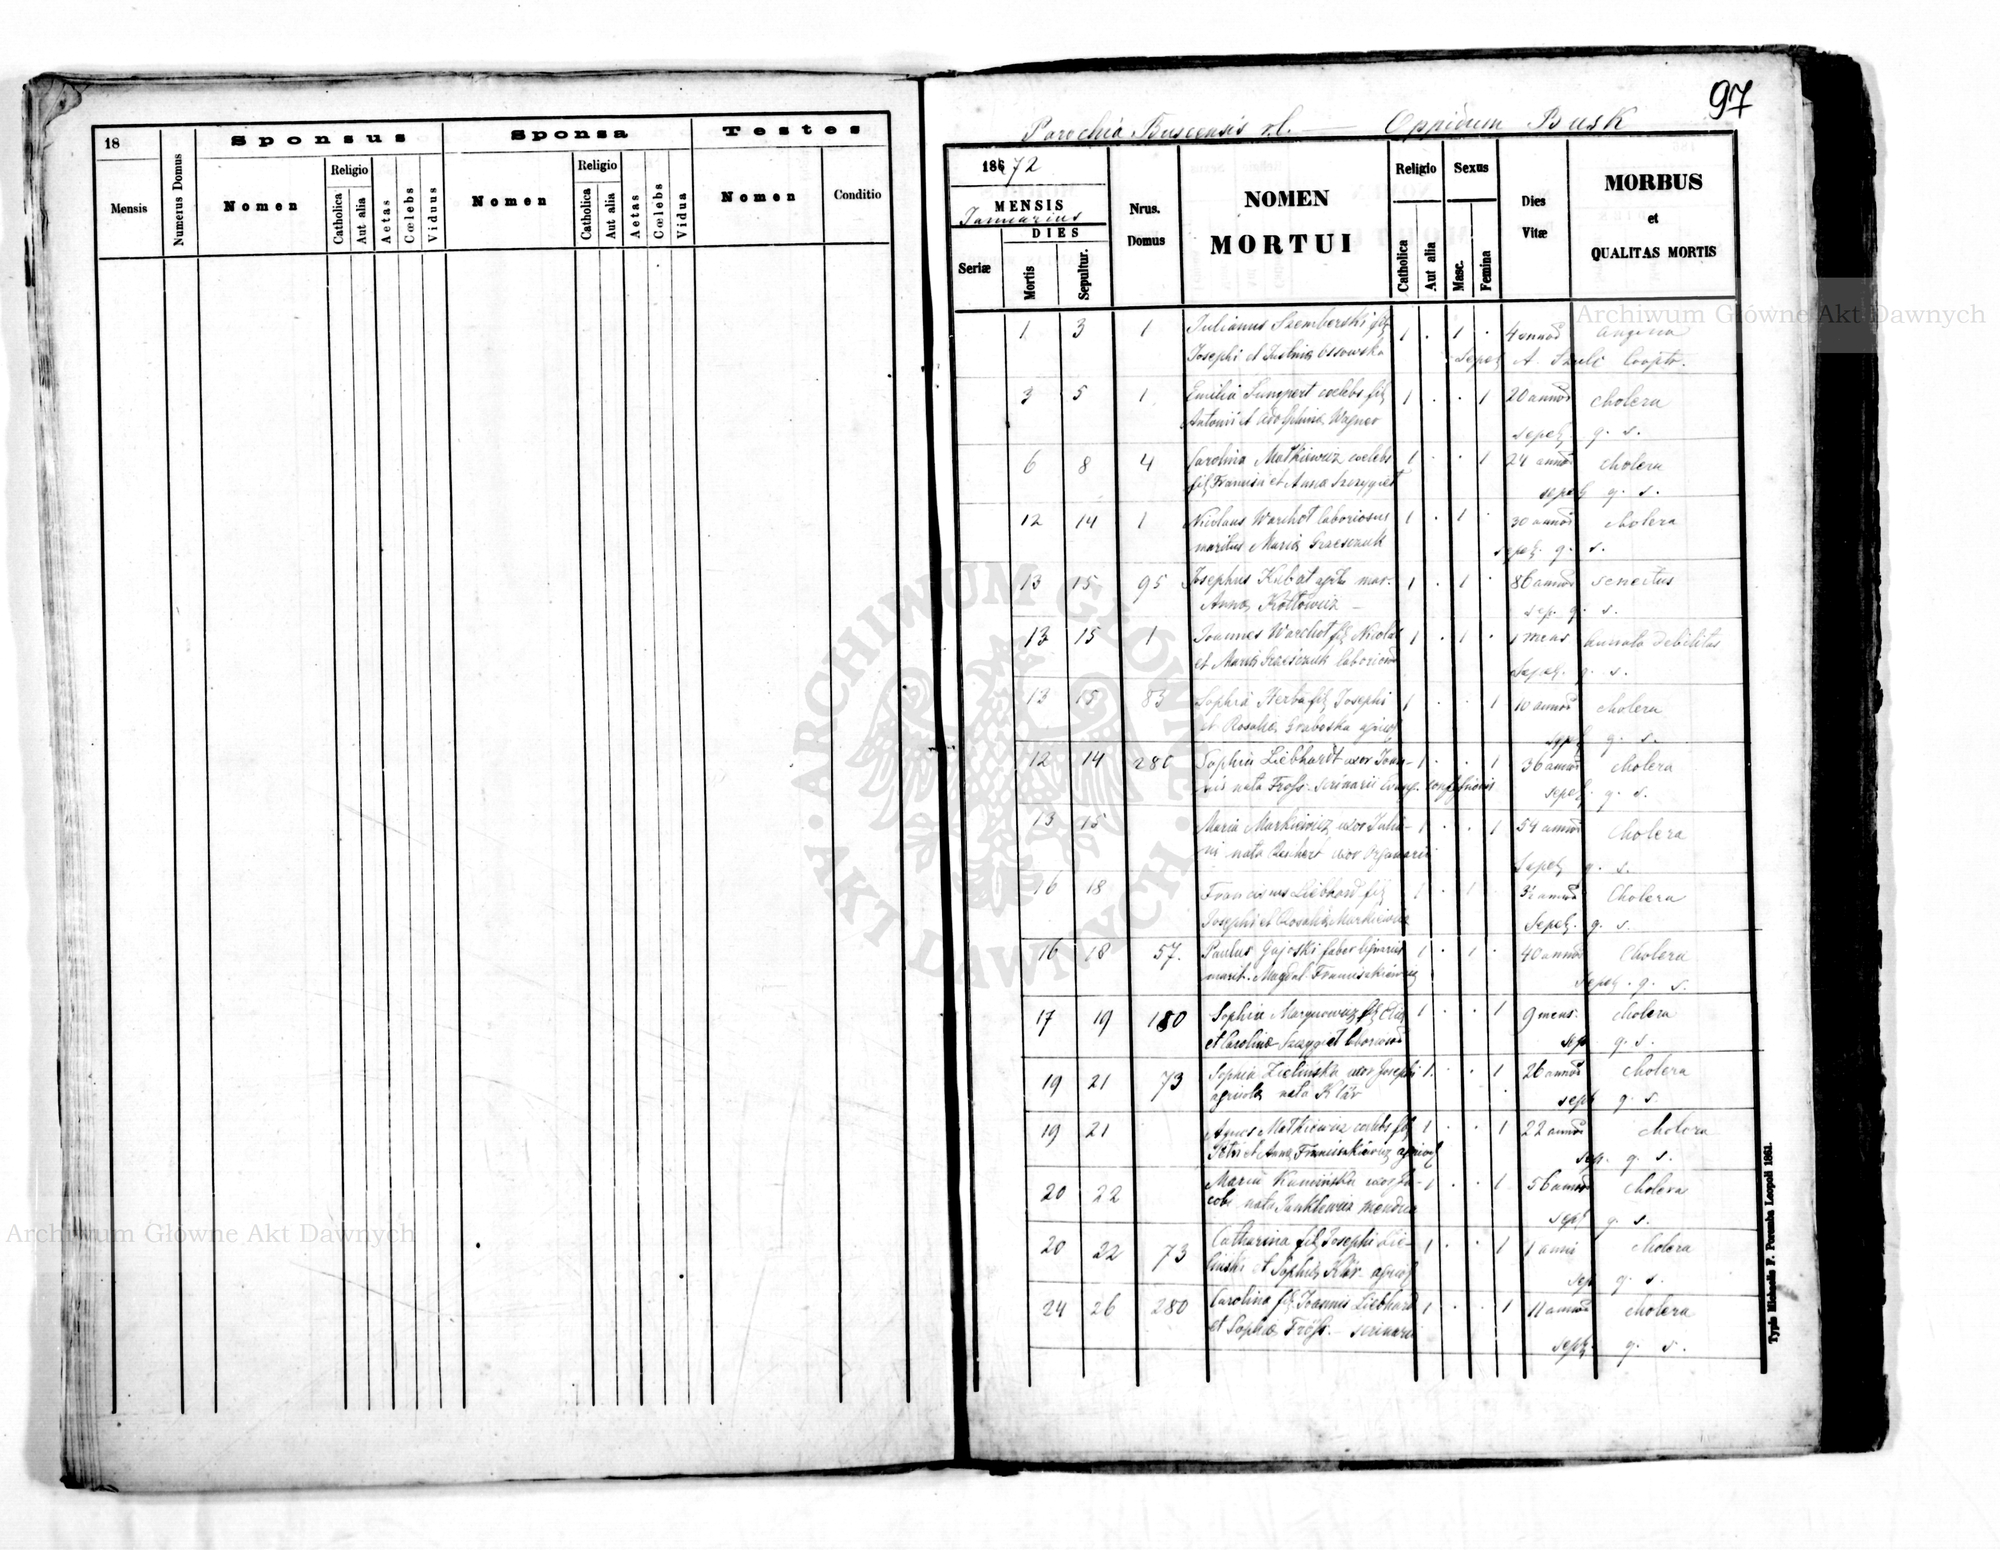 18
Sponsus
Sponsa
Testes
Mensis
Numerus Domus
Nomen
Religio
Catholica
Aut alia
Aetas
Cœlebs
Viduus
Nomen
Religio
Catholica
Aut alia
Aetas
Cœlebs
Vidua
Nomen
Conditio
97
Parochia Buscensis r.l. — Oppidum Busk
186 72
MENSIS
Januarius
DIES
Seriæ
Mortis
Sepultur.
Nrus.
Domus
NOMEN
MORTUI
Religio
Catholica
Aut alia
Sexus
Masc.
Femina
Dies
Vitæ
MORBUS
et
QUALITAS MORTIS
1 3 1 Julianus Szemberski fil 1 . 1 . 4 annor angina
Josephi et Justinæ Ossowska Sepel A. Szulc Cooptr.
3 5 1 Emilia coelebs fil 1 . . 1 20 annor cholera
Antonii et Wagner sepel q. s.
6 8 4 Carolina Matkiewicz coelebs 1 . . 1 24 annor cholera
fil Francisci et Anna Szczygieł sepel q. s.
12 14 1 Nicolaus Warchoł laboriosus 1 . 1 . 30 annor cholera
maritus Mariæ sepel. q. s.
13 15 95 Josephus Kubat mar. 1 . 1 . 86 annor senectus
Annæ Kottowicz — sep. q. s.
13 15 1 Joannes Warchoł fil Nicolai 1 . 1 . 1 mens debilitas
et Mariæ Sepel. q. s.
13 15 83 Sophia Herba fil Josephi 1 . . 1 10 annor cholera
et Rosaliæ Graboska sepel q. s.
12 14 280 Sophia Liebhardt uxor Joan- 1 . . 1 36 annor cholera
nis nata scrinarii Evang. confessionis sepel q. s.
13 15 Maria Markiewicz uxor Julia- 1 . . 1 54 annor cholera
ni nata uxor Sepel q. s.
16 18 Franciscus Liebhard fil 1 . 1 . annor Cholera
Josephi et Rosaliæ Markiewicz Sepel. q. s.
16 18 57. Paulus Gajoski faber lignarius 1 . 1 . 40 annor Cholera
marit. Magdal. Franciszkiewicz sepel. q. s.
17 19 180 Sophia fil 1 . . 1 9 mens. cholera
et Carolinæ Szczygieł sep. q. s.
19 21 73 Sophia Zielińska uxor Josephi 1 . . 1 26 annor cholera
agricolæ nata Klär sepel q. s.
19 21 Agnes Matkiewicz coelebs fil 1 . . 1 22 annor cholera
Petri et Annæ Franciszkiewicz sep. q. s.
20 22 Maria Kamińska uxor Ja- 1 . . 1 56 annor cholera
cobi nata Jankiewicz sepel q. s.
20 22 73 Catharina fil Josephi Zie- 1 . . 1 1 anni cholera
liński et Sophiæ Klär sep q. s.
24 26 280 Carolina fil Joannis Liebhard 1 . . 1 11 annor cholera
et Sophiæ scrinarii sepel. q. s.
Typis Michaelis F. Poremba Leopoli 1861.
Archiwum Główne Akt Dawnych
Archiwum Główne Akt Dawnych
ARCHIWUM GŁÓWNE · AKT DAWNYCH ·